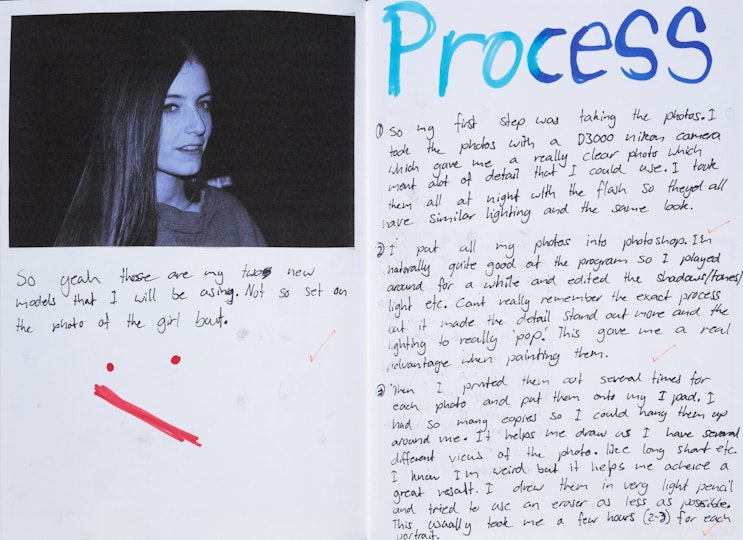 So yeah those are my two new
models that I will be using. Not so set on
the photo of the girl but.
Process
① So my first step was taking the photos. I
took the photos with a D3000 nikon camera
which gave me a really clear photo which
ment alot of detail that I could use. I took
them all at night with the flash so theyd all
have similar lighting and the same look.
② I put all my photos into photoshop. Im
naturally quite good at the program so I played
around for a while and edited the shadows/tones/
light etc. Cant really remember the exact process
but it made the detail stand out more and the
lighting to really 'pop'. This gave me a real
advantage when painting them.
③ Then I printed them out several times for
each photo and put them onto my I pad. I
had so many copies so I could hang them up
around me. It helps me draw as I have several
different views of the photo. like long short etc.
I know Im weird but it helps me acheive a
great result. I drew them in very light pencil
and tried to use an eraser as less as possible.
This usually took me a few hours (2-3) for each
portrait.